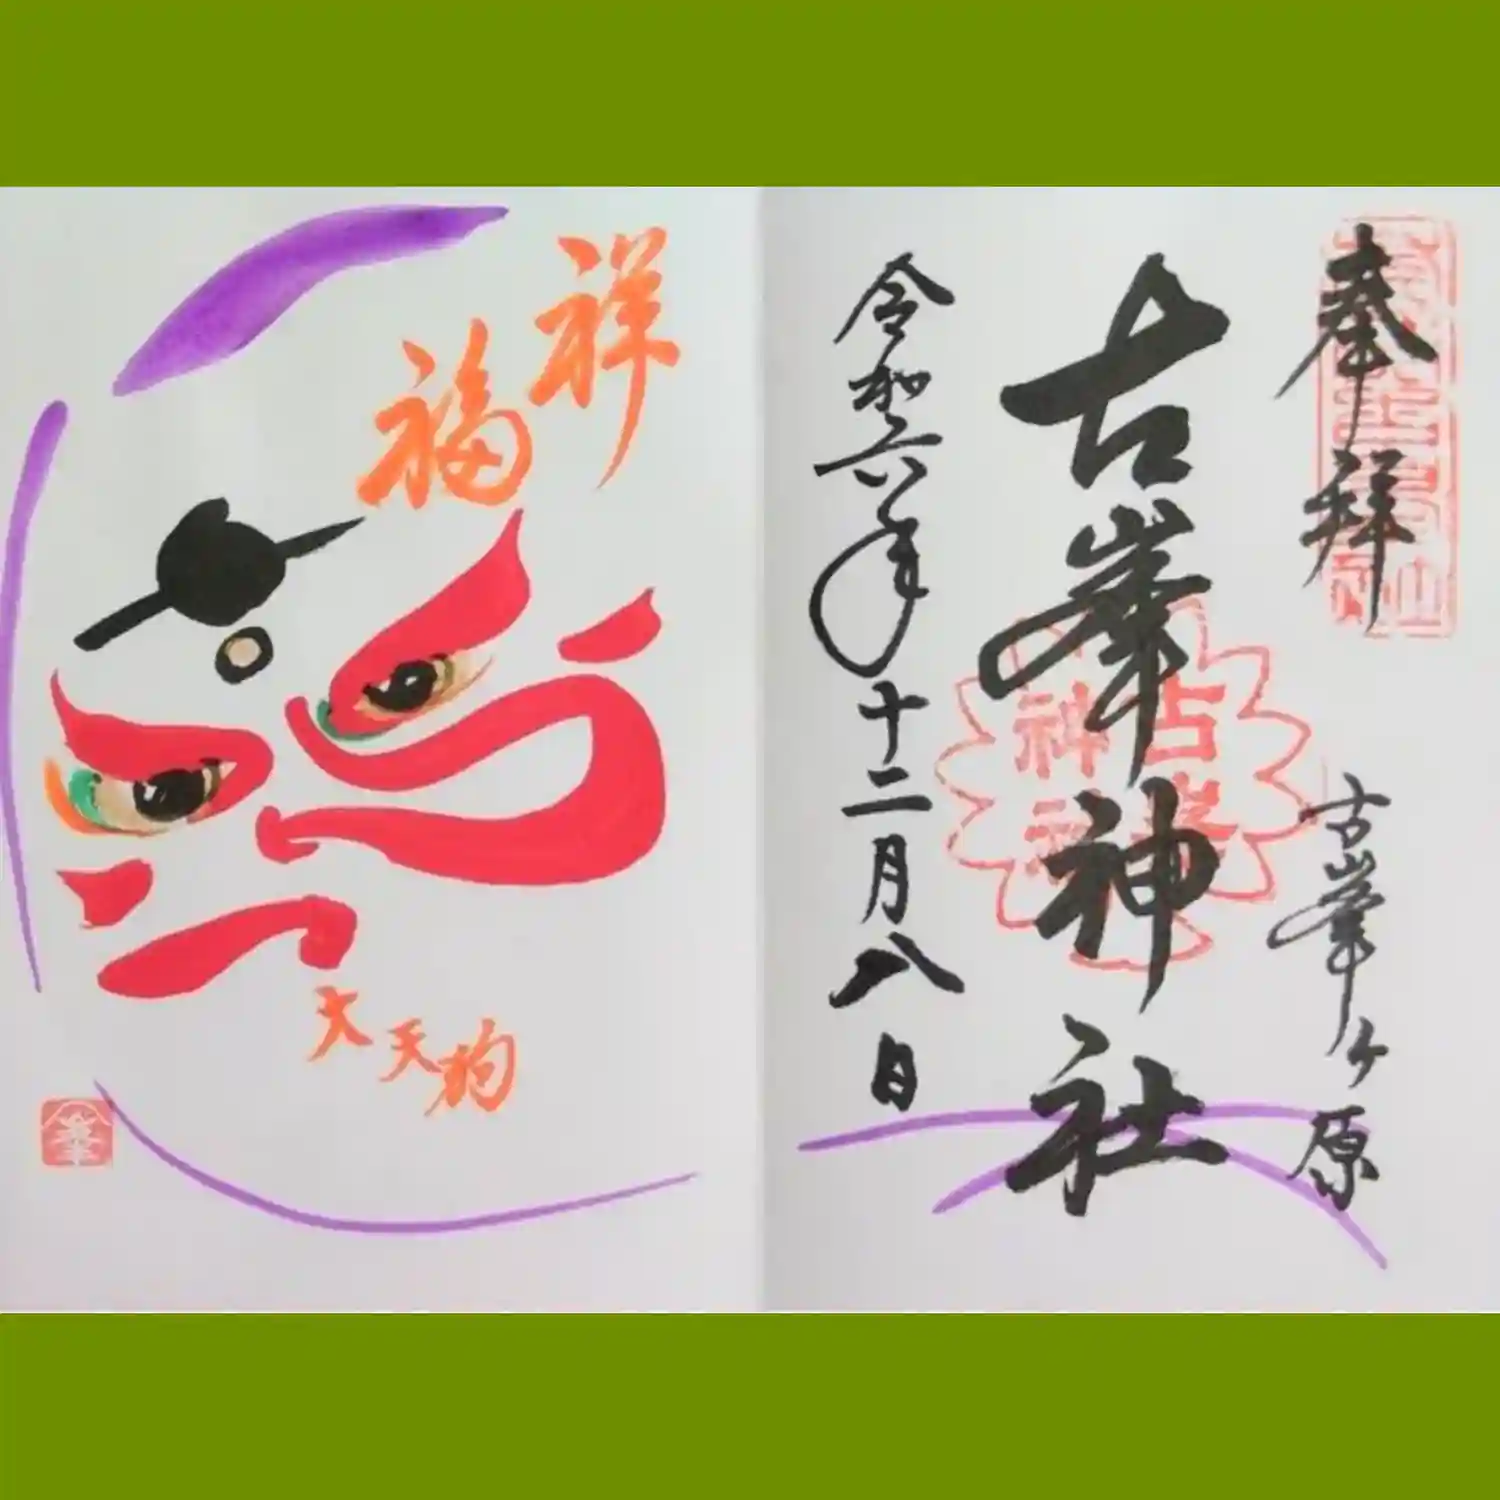 奉拝
古峯ヶ原
古峯神社
古峯
神社
令和六年十二月八日
祥
福
大天狗
峯